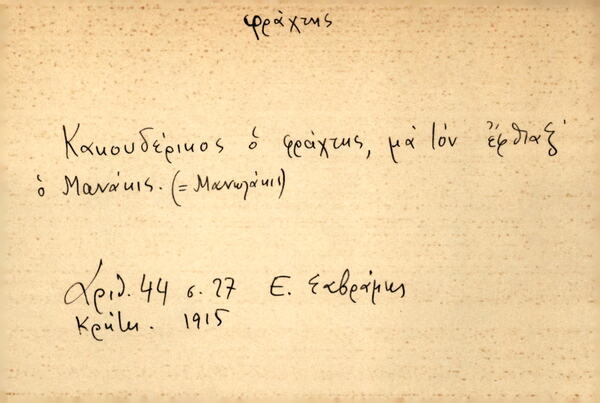 φράχτης
Κακουδέρικος ὁ φράχτης, μά τόν ἔφθιαξ'
ὁ Μανάκις. (= Μανωλάκις)
Ἀριθ. 44 σ. 27 Ε. Σαβράμης
Κρήτη. 1915